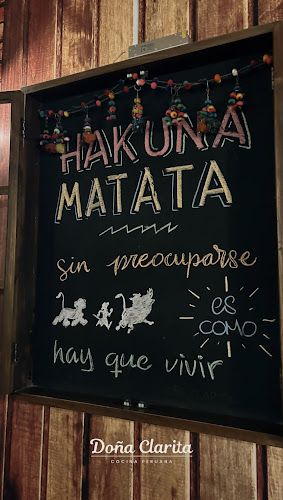 HAKUNA
MATATA
sin preocuparse
es
COMO
hay que vivir
Doña Clarita
COCINA PERUANA